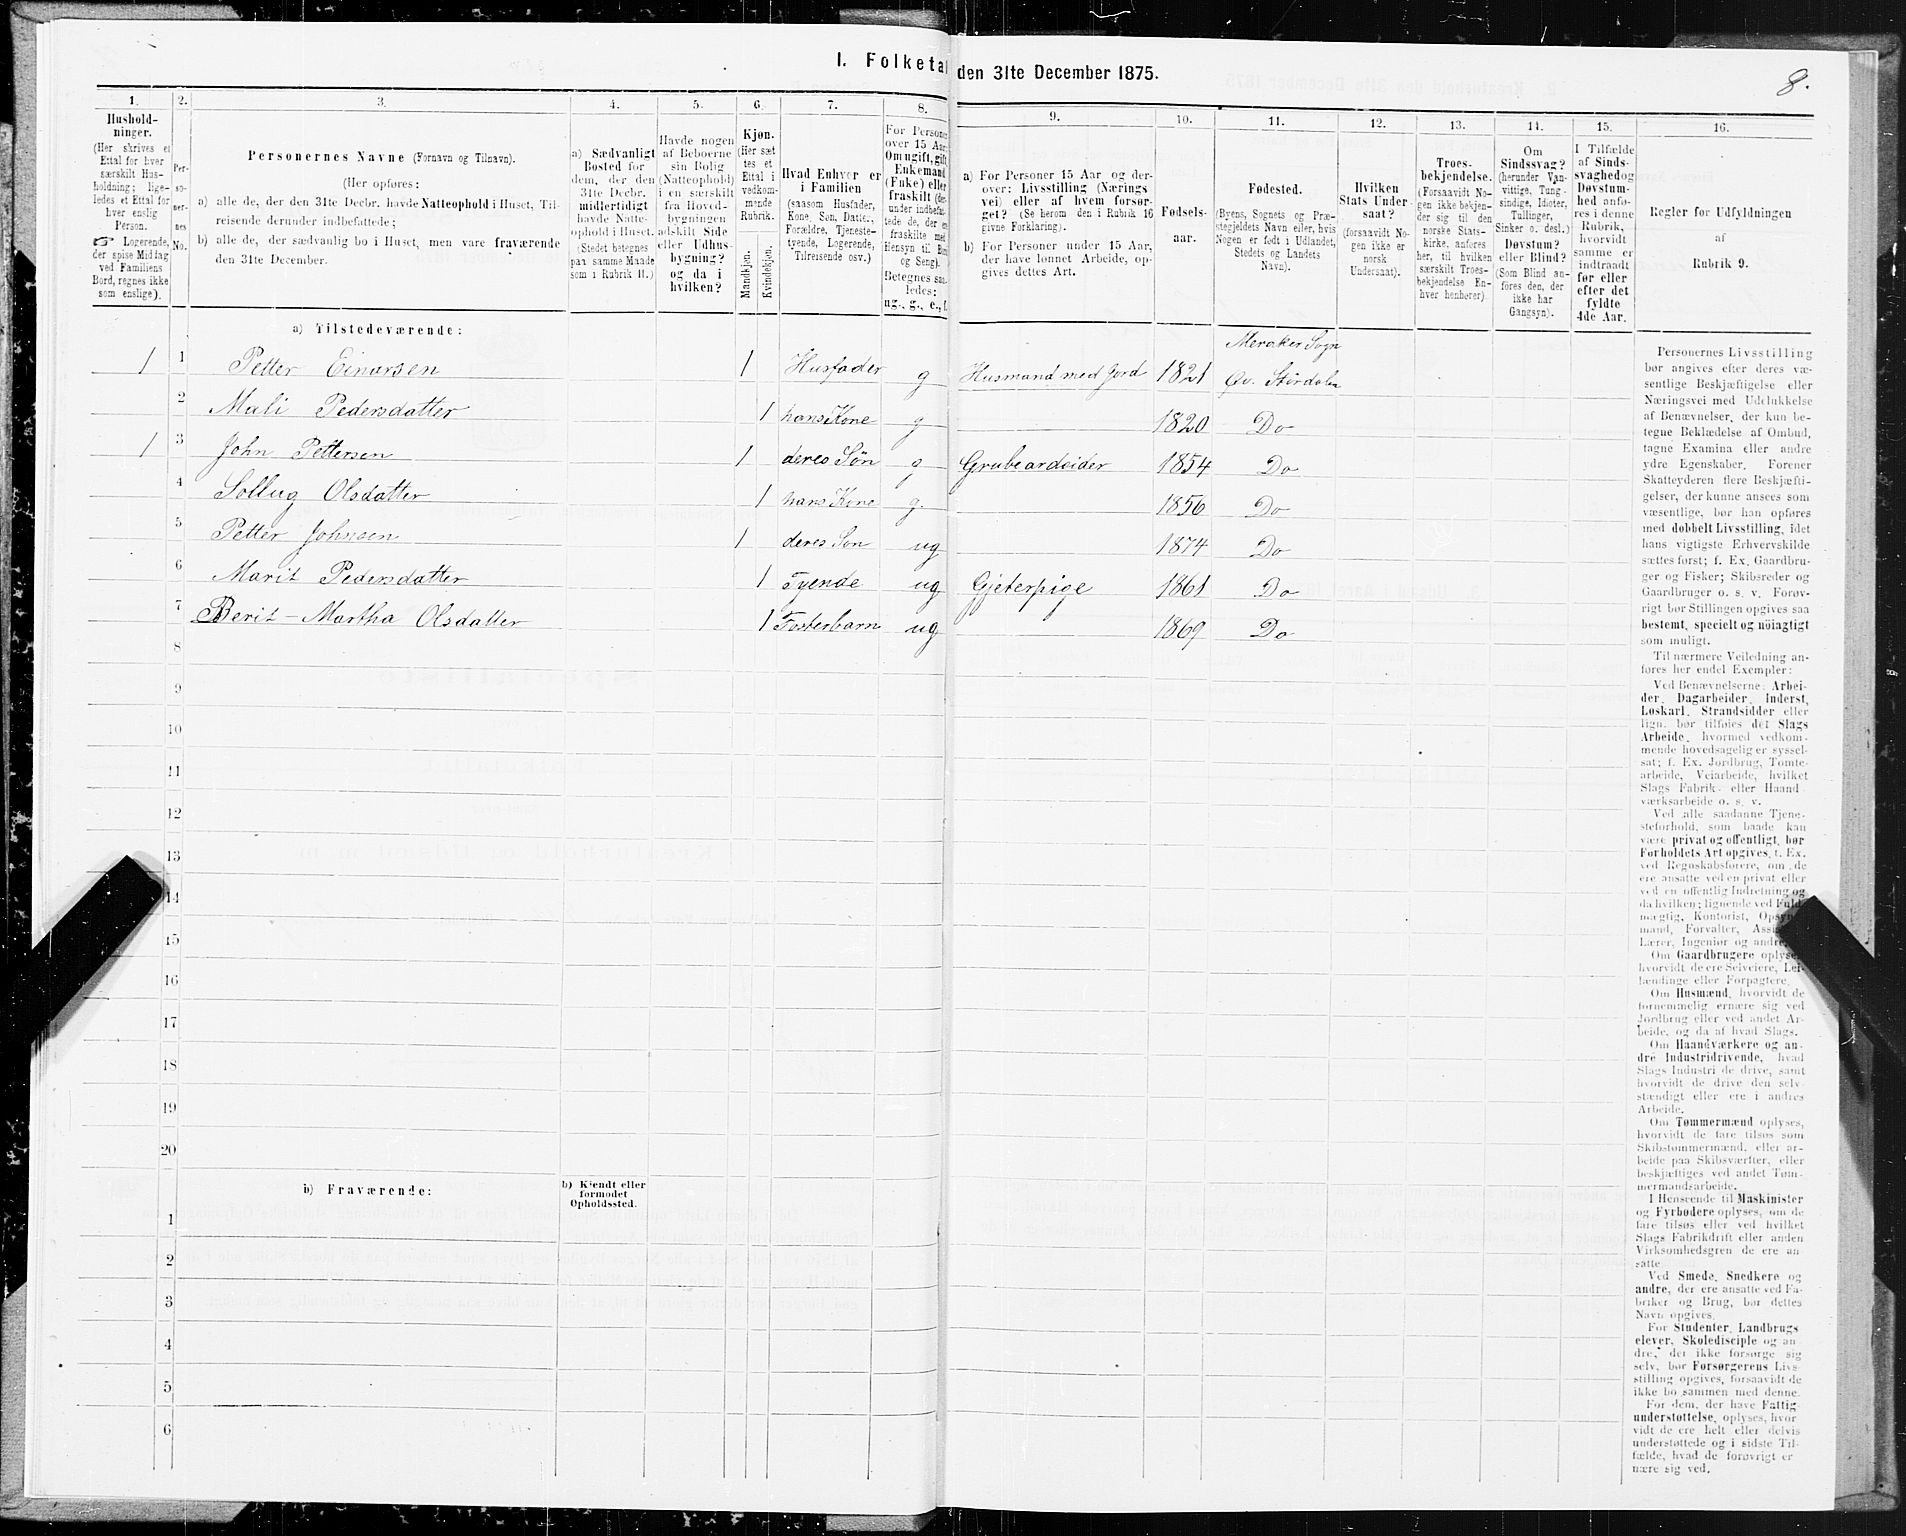 I. Folketal den 31te December 1875.
8.
1. 2. 3. 4. 5. 6. 7. 8. 9. 10. 11. 12. 13. 14. 15. 16.
Hushold-
ninger.
(Her skrives et
Ettal for hver
særskilt Hus-
holdning; lige-
ledes et Ettal for
hver enslig
Person.
☞ Logerende,
der spise Middag
ved Familiens
Bord, regnes ikke
som enslige).
Per-
so-
ner-
nes
No.
Personernes Navne (Fornavn og Tilnavn).
(Her opføres:
a) alle de, der den 31te Decbr. havde Natteophold i Huset, Til-
reisende derunder indbefattede;
b) alle de, der sædvanlig bo i Huset, men vare fraværende
den 31te December.
a) Sædvanligt
Bosted for
dem, der den
31te Decbr.
midlertidigt
havde Natte-
ophold i Huset.
(Stedet betegnes
paa samme Maade
som i Rubrik 11.)
Havde nogen
af Beboerne
sin Bolig
(Natteophold)
i en særskilt
fra Hoved-
bygningen
adskilt Side
eller Udhus-
bygning?
og da i
hvilken?
Kjøn.
(Her sæt
tes et
Ettal i
vedkom-
mende
Rubrik.
Mandkjøn.
Kvindekjøn.
Hvad Enhver er
i Familien
(saasom Husfader,
Kone, Søn, Datter,
Forældre, Tjeneste-
tyende, Logerende,
Tilreisende osv.)
For Personer
over 15 Aar:
Om ugift, gift,
Enkemand
(Enke) eller
fraskilt (der-
under indbefat-
tede de, der ere
fraskilte med
Hensyn til Bord
og Seng).
Betegnes saa-
ledes:
ug., g., e., f.
a) For Personer 15 Aar og der-
over: Livsstilling (Nærings
vei) eller af hvem forsør-
get? (Se herom den i Rubrik 16
givne Forklaring).
b) For Personer under 15 Aar,
der have lønnet Arbeide, op-
gives dettes Art.
Fødsels-
aar.
Fødested.
(Byens, Sognets og Præ-
stegjeldets Navn eller, hvis
Nogen er født i Udlandet,
Stedets og Landets
Navn).
Hvilken
Stats Under-
saat?
(forsaavidt No-
gen ikke er
norsk
Undersaat).
Troes-
bekjendelse.
(Forsaavidt No-
gen ikke bekjen-
der sig til den
norske Stats-
kirke, anføres
her, til hvilken
særskilt Troes-
bekjendelse En-
hver henhører)
Om
Sindssvag?
(herunder Van-
vittige, Tung-
sindige, Idioter,
Tullinger,
Sinker o. desl.)
Døvstum?
eller Blind?
(Som Blind an-
føres den, der
ikke har
Gangsyn).
I Tilfælde
af Sinds-
svaghed og
Døvstum-
hed anfø-
res i denne
Rubrik,
hvorvidt
samme er
indtraadt
før eller
efter det
fyldte
4de Aar.
Regler for Udfyldningen
af
Rubrik 9.
a) Tilstedeværende:
Meraker Sogn
1 1 Petter Einarsen 1 Husfader g Husmand med Jord 1821 Øv. Stördalen
2 Mali Pedersdatter 1 hans Kone g 1820 Do
1 3 John Pettersen 1 deres Søn g Grubeardeider 1854 Do
4 Sollug Olsdatter 1 hans Kone g. 1856 Do
5 Petter Johnsen 1 deres Søn ug 1874 Do
6 Marit Pedersdatter 1 Tyende ug Gjeterpige 1861 Do
7 Berit-Martha Olsdatter 1 Fosterbarn ug 1869 Do
8
9
10
11
12
13
14
15
16
17
18
19
20
b) Fraværende:
b) Kjendt eller
formodet
Opholdssted.
1
2
3
4
5
6
Personernes Livsstilling
bør angives efter deres væ-
sentlige Beskjæftigelse eller
Næringsvei med Udelukkelse
af Benævnelser, der kun be-
tegne Beklædelse af Ombud,
tagne Examina eller andre
ydre Egenskaber. Forener
Skatteyderen flere Beskjæfti-
gelser, der kunne ansees som
væsentlige, bør han opføres
med dobbelt Livsstilling, idet
hans vigtigste Erhvervskilde
sættes først; f. Ex. Gaardbru-
ger og Fisker; Skibsreder og
Gaardbruger o. s. v. Forøv-
rigt bør Stillingen opgives saa
bestemt, specielt og nöiagtigt
som muligt.
Til nærmere Veiledning an-
føres her endel Exempler:
Ved Benævnelserne: Arbei-
der, Dagarbeider, Inderst,
Løskarl, Strandsidder eller
lign. bør tilføies det Slags
Arbeide, hvormed vedkom-
mende hovedsagelig er syssel-
sat; f. Ex. Jordbrug, Tomte-
arbeide, Veiarbeide, hvilket
Slags Fabrik- eller Haand-
værksarbeide o. s. v.
Ved alle saadanne Tjene-
steforhold, som baade kan
være privat og offentligt, bør
Forholdets Art opgives, f. Ex.
ved Regnskabsførere, om de
ere ansatte ved en privat eller
ved en offentlig Indretning og
da hvilken; lignende ved Fuld-
mægtig, Kontorist, Opsyns-
mand, Forvalter, Assi
Lærer, Ingeniør og andre.
Om Gaardbrugere oplyses,
hvorvidt de ere Selveiere, Lei-
lændinge eller Forpagtere.
Om Husmænd, hvorvidt de
fornemmelig ernære sig ved
Jordbrug eller ved andet Ar-
beide, og da af hvad Slags.
Om Haandværkere og an-
dre Industridrivende, hvad
Slags Industri de drive, samt
hvorvidt de drive den selv-
stændigt eller ere i andres
Arbeide.
Om Tømmermænd oplyses,
hvorvidt de fare tilsøs som
Skibstømmermænd, eller ar-
beide paa Skibsværfter, eller
beskjæftiges ved andet Tøm-
mermandsarbeide.
I Henseende til Maskinister
og Fyrbødere oplyses, om de
fare tilsøs eller ved hvilket
Slags Fabrikdrift eller anden
Virksomhedsgren de ere an-
satte
Ved Smede, Snedkere og
andre, der ere ansatte ved Fa-
briker og Brug, bør dettes
Navn opgives.
For Studenter, Landbrugs-
elever, Skoledisciple og an-
dre, der ikke forsørge sig
selv, bør Forsørgerens Livs-
stilling opgives, forsaavidt de
ikke bo sammen med denne.
For dem, der have Fattig-
understøttelse, oplyses, hvor
vidt de ere helt eller delvis
understøttede og i sidste Til-
fælde, hvad de forøvrigt er
nære sig ved.